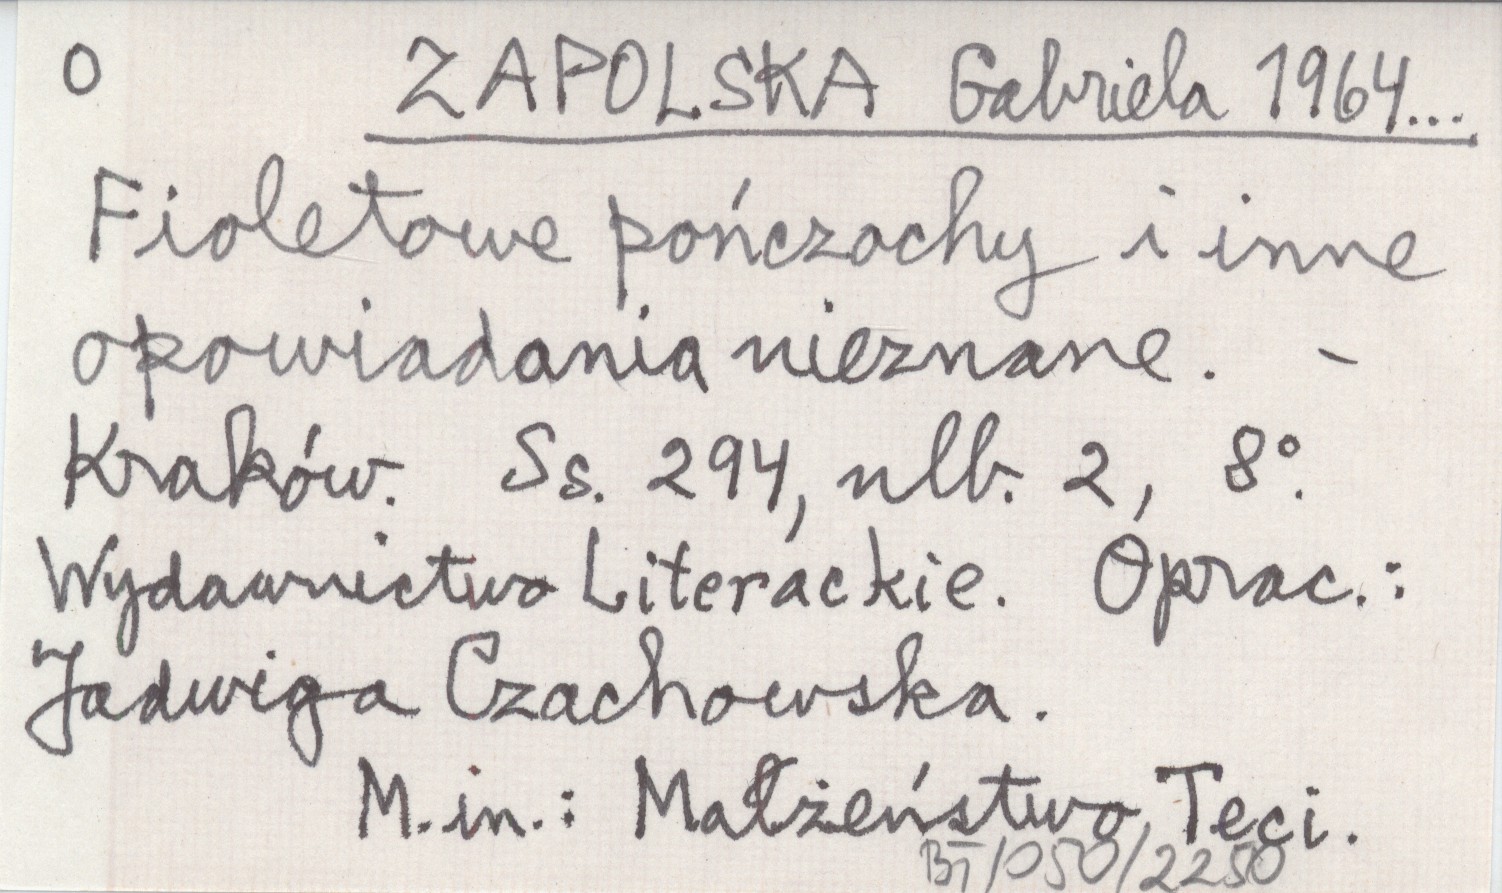 O ZAPOLSKA Gabriela 1964...
Fioletowe pończochy i inne
opowiadania nieznane. -
Kraków. Ss. 294, nlb. 2, 8°.
Wydawnictwo Literackie. Oprac.:
Jadwiga Czachowska.
M.in.: Małżeństwo Teci.
BT/050/2250